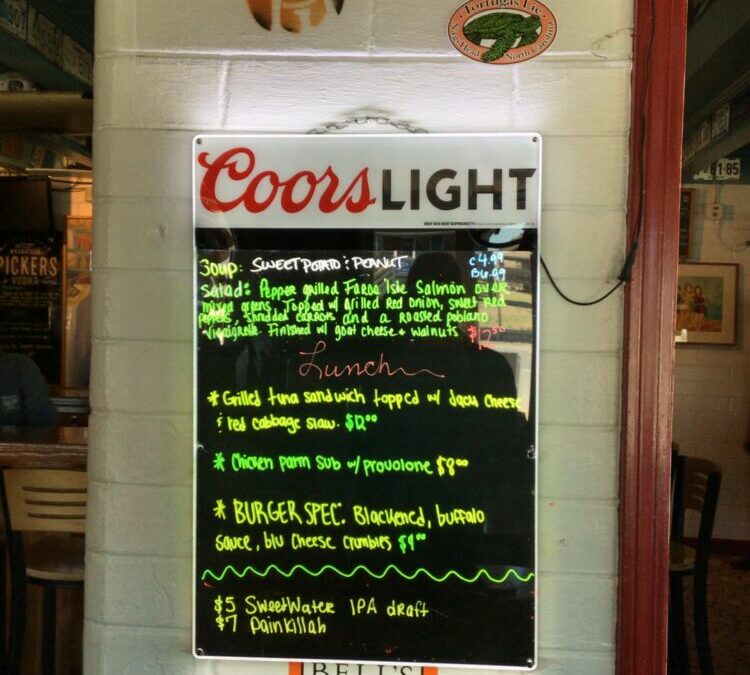 Tortugas' Lie
Nags Head North Carolina
Coors LIGHT
1-85
PICKERS
VODKA
Soup: SWEET POTATO & PEANUT C 4.99
B 6.99
Salad: Pepper grilled Faroe Isle Salmon over
mixed greens. Topped w/ grilled Red Onion, sweet red
peppers, shredded carrots, and a roasted poblano
vinaigrette. Finished w/ goat cheese & walnuts $12.50
Lunch
* Grilled tuna sandwich topped w/ cheese
& red cabbage slaw. $12.00
* Chicken parm sub w/ provolone $8.00
* BURGER SPEC. Blackened, buffalo
sauce, blu cheese crumbles $9.00
$5 SweetWater IPA draft
$7 Painkillah
BELL'S